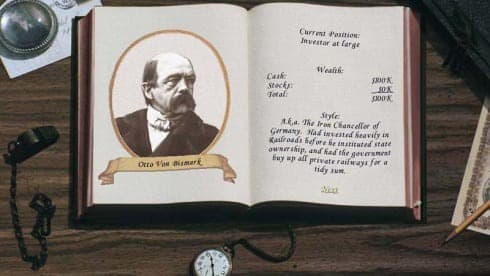 Otto Von Bismark
Current Position:
Investor at large
Wealth:
Cash: $100K
Stocks: $0K
Total: $100K
Style:
A.k.a. The Iron Chancellor of
Germany. Had invested heavily in
Railroads before he instituted state
ownership, and had the government
buy up all private railways for a
tidy sum.
Next